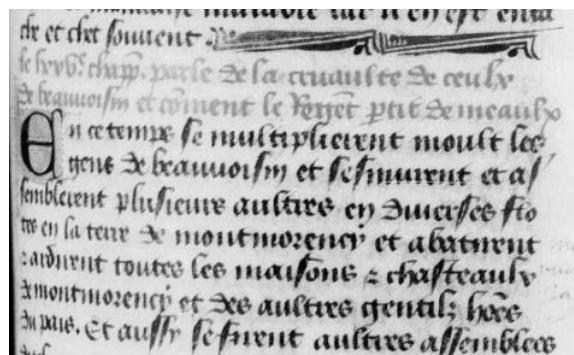 maniaire muable car il en est enta
che et chet souvent.
le lxvi.e chapp. parle de la cruaulte de ceulx
de beauvoisin et coment le Regēt ptit de meaulx
En ce temps se multiplierent moult les
gens de beauvoisin et sesmurent et as
semblerent plusieurs aultres en diverses flo
tes en la terre de montmorency et abatirent
z ardirent toutes les maisons z chasteaulx
de montmorency et des aultres gentilz hōes
du pais. Et aussy se firent aultres assemblees